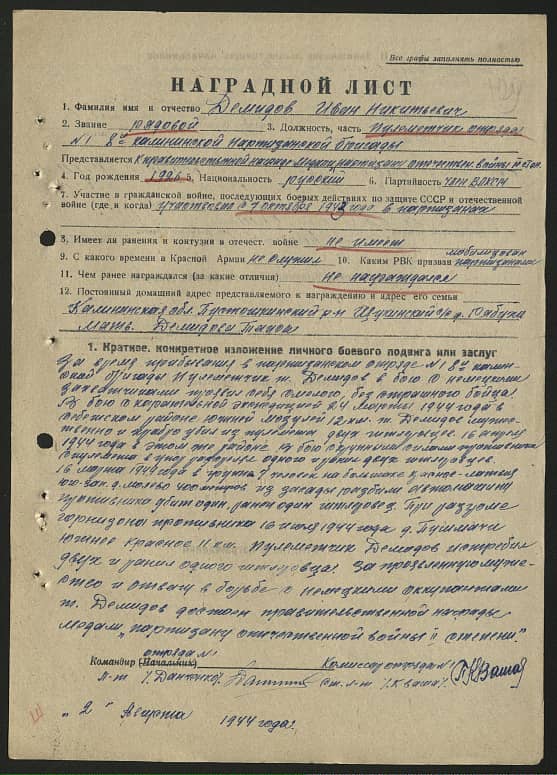 Все графы заполнять полностью
НАГРАДНОЙ ЛИСТ
1. Фамилия имя и отчество Демидов Иван Никитьевич
2. Звание рядовой 3. Должность, часть Пулеметчик отряда
№1 8ой калининской партизанской бригады
Представляется К правительственной награде Медали партизану отечествен. войны II степ.
4. Год рождения 1926 5. Национальность русский 6. Партийность член ВЛКСМ
7. Участие в гражданской войне, последующих боевых действиях по защите СССР и отечественной
войне (где и когда) Участвовал с 7 октября 1943 года в партизанах
8. Имеет ли ранения и контузии в отечест. войне не имеет
9. С какого времени в Красной Армии не служил 10. Каким РВК призван мобилизован партизанами
11. Чем ранее награждался (за какие отличия) Не награждался
12. Постоянный домашний адрес представляемого к награждению и адрес его семьи
Калининская обл. Пустошкинский р-н Щукинский с/с д.
Мать. Демидова
1. Краткое, конкретное изложение личного боевого подвига или заслуг
За время пребывания в партизанском отряде №1 8ой калин-
ской бригады Пулеметчик т. Демидов в бою с немецкими
захватчиками проявил себя смелого, безстрашного бойца.
В бою с карательной экспедицией 24 марта 1944 года в
районе южней 12 км. т. Демидов мужест-
венно и храбро убил из пулемета двух гитлуовцев. 16 апреля
1944 года в этом же районе в бою с крупными силами противника
с пулемета в упор одного и ранил двух гитлуовцев.
16 марта 1944 года в группе 7 человек на большаке
юго-зап. д. 400 метров из засады разбили автомашину
противника убит один, ранен один гитлуовец. При разгроме
гарнизона противника 16 июля 1944 года д.
южнее Красное 11 км. Пулеметчик Демидов истребил
двух и ранил одного гитлуовца. За проявленную муже-
ство и отвагу в борьбе с немецкими оккупантами
т. Демидов достоин правительственной награды
медали „партизану отечественной войны II степени"
Командир (Начальник) отряда №1 Комиссар отряда №1
л-т ст. л-т /Кваша/
„2" Августа 1944 года.